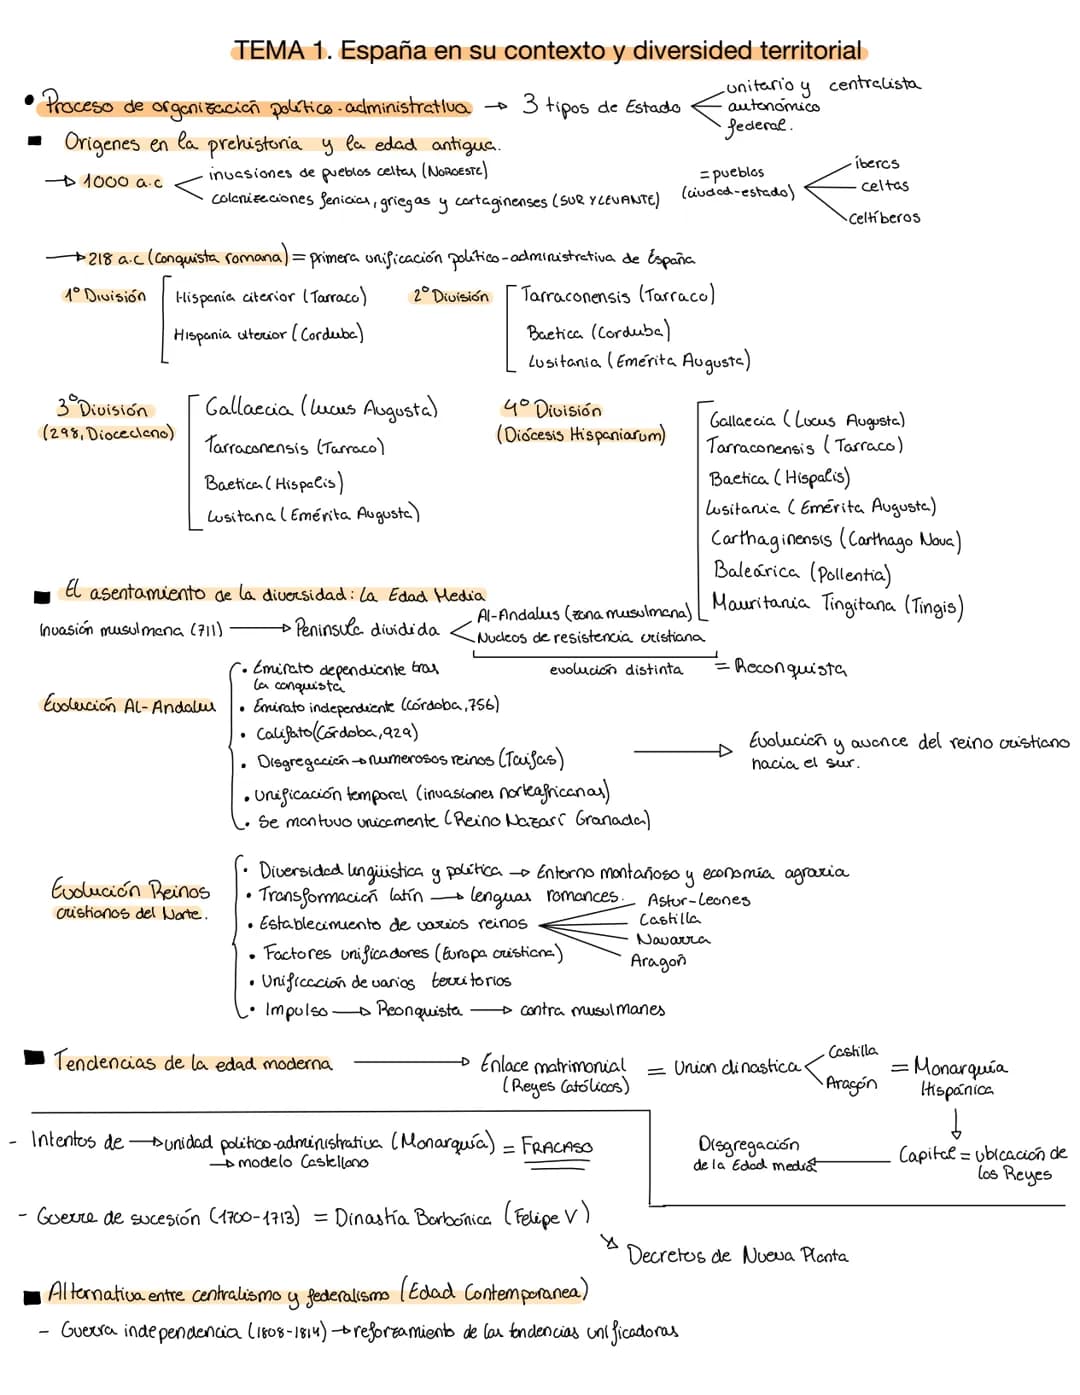 TEMA 1. España en su contexto y diversided territorial
• Proceso de organización político-administrativa → 3 tipos de Estado
unitario y centralista
autonómico
federal.
Orígenes en la prehistoria y la edad antigua.
→ 1000 a.c
invasiones de pueblos celtas (NOROESTE)
colonizaciones fenicias, griegas y cartaginenses (SUR Y LEVANTE)
= pueblos
(ciudad-estado)
íberos
celtas
Celtíberos
→ 218 a.c (Conquista romana) = primera unificación político-administrativa de España
1º División
Hispania citerior (Tarraco)
Hispania ulterior (Corduba)
2º División
Tarraconensis (Tarraco)
Baetica (Corduba)
Lusitania (Emérita Augusta)
3º División
(298, Diocecleno)
Gallaecia (Lucus Augusta)
Tarraconensis (Tarraco)
Baetica (Hispalis)
Lusitana (Emérita Augusta)
4º División
(Diócesis Hispaniarum)
Gallaecia (Lucus Augusta)
Tarraconensis (Tarraco)
Baetica (Hispalis)
Lusitania (Emérita Augusta)
Carthaginensis (Carthago Nova)
Baleárica (Pollentia)
Mauritania Tingitana (Tingis)
El asentamiento de la diversidad: La Edad Media
Invasión musulmana (711) → Península dividida
Al-Andalus (zona musulmana)
Nucleos de resistencia cristiana
evolución distinta = Reconquista
Evolución Al-Andalus
• Emirato dependiente tras
la conquista
• Emirato independiente (Córdoba, 756)
• Califato (Córdoba, 929)
• Disgregación → numerosos reinos (Taifas)
• Unificación temporal (invasiones norteafricanas)
• Se mantuvo unicamente (Reino Nazarí Granada)
→ Evolución y avance del reino cristiano
hacia el sur.
Evolución Reinos
cristianos del Norte.
• Diversidad lingüística y política → Entorno montañoso y economía agraria
• Transformación latín → lenguas romances.
• Establecimiento de varios reinos
Astur-Leones
Castilla
Navarra
Aragón
• Factores unificadores (Europa cristiana)
• Unificación de varios territorios
• Impulso → Reonquista → contra musulmanes
Tendencias de la edad moderna → Enlace matrimonial
(Reyes Católicos)
= Union dinastica
Castilla
Aragón
= Monarquía
Hispánica
Capital = ubicación de
los Reyes
Disgregación
de la Edad media
- Intentos de → unidad político-administrativa (Monarquía) = FRACASO
→ modelo Castellano
- Guerra de sucesión (1700-1713) = Dinastía Borbónica (Felipe V)
Decretos de Nueva Planta
Alternativa entre centralismo y federalismo (Edad Contemporanea)
- Guerra independencia (1808-1814) → reforzamiento de las tendencias unificadoras